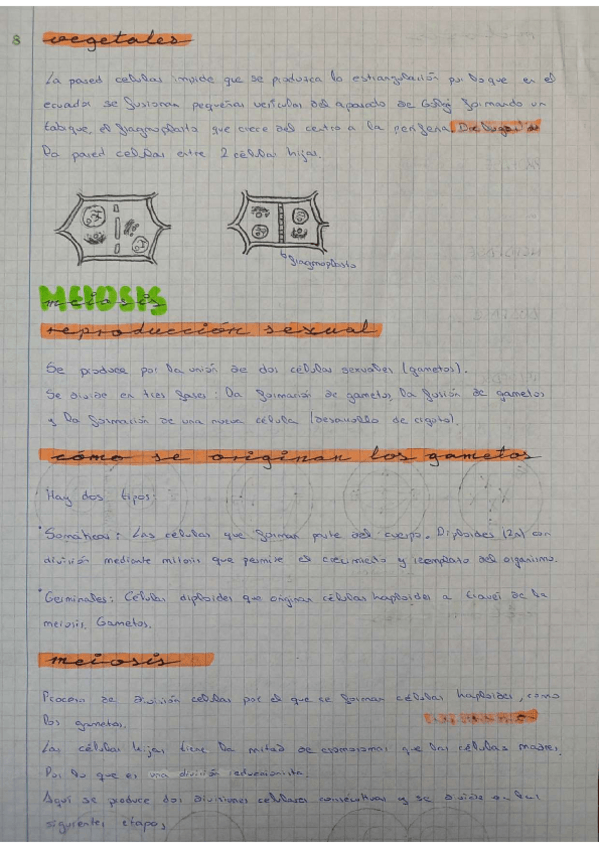 8
vegetales
La pared celular impide que se produzca la estrangulación por lo que en el
ecuador se fusionan pequeñas vesículas del aparato de Golgi formando un
tabique, el fragmoplasto que crece del centro a la periferia. Da lugar a
la pared celular entre 2 células hijas.
fragmoplasto
MEIOSIS
meiosis
reproducción sexual
Se produce por la unión de dos células sexuales (gametos).
Se divide en tres fases: La formación de gametos, la fusión de gametos
y la formación de una nueva célula (desarrollo de cigoto).
cómo se originan los gametos
Hay dos tipos:
·Somáticas: Las células que forman parte del cuerpo. Diploides (2n) con
división mediante mitosis que permite el crecimiento y reemplazo del organismo.
·Germinales: Células diploides que originan células haploides a través de la
meiosis. Gametos.
meiosis
Proceso de división celular por el que se forman células haploides, como
los gametos.
Las células hijas tiene la mitad de cromosomas que las células madres.
Por lo que es una división reduccionista.
Aquí se produce dos divisiones celulares consecutivas y se divide en las
siguientes etapas